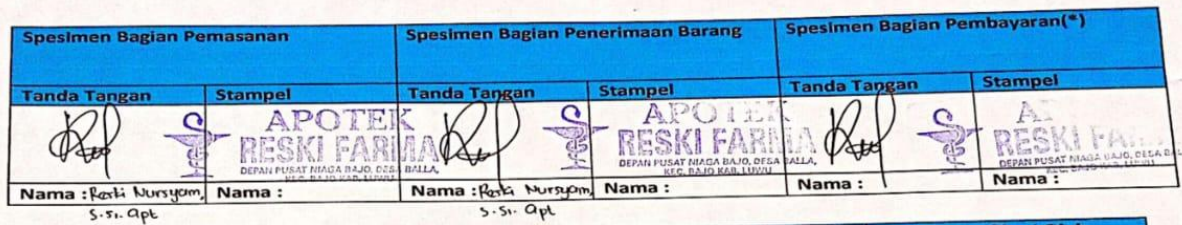 Spesimen Bagian Pemasanan
Spesimen Bagian Penerimaan Barang
Spesimen Bagian Pembayaran(*)
Tanda Tangan
Stampel
Tanda Tangan
Stampel
Tanda Tangan
Stampel
APOTEK
RESKI FARMA
DEPAN PUSAT NIAGA BAJO, DESA BALLA,
KEC. BAJO KAB. LUWU
APOTEK
RESKI FARMA
DEPAN PUSAT NIAGA BAJO, DESA BALLA,
KEC. BAJO KAB. LUWU
RESKI
DEPAN PUSAT NIAGA BAJO, DESA
KEC. BAJO KAB. LUWU
Nama : Reski Nursyam,
S.Si. apt
Nama :
Nama : Reski Nursyam,
S.Si. apt
Nama :
Nama :
Nama :